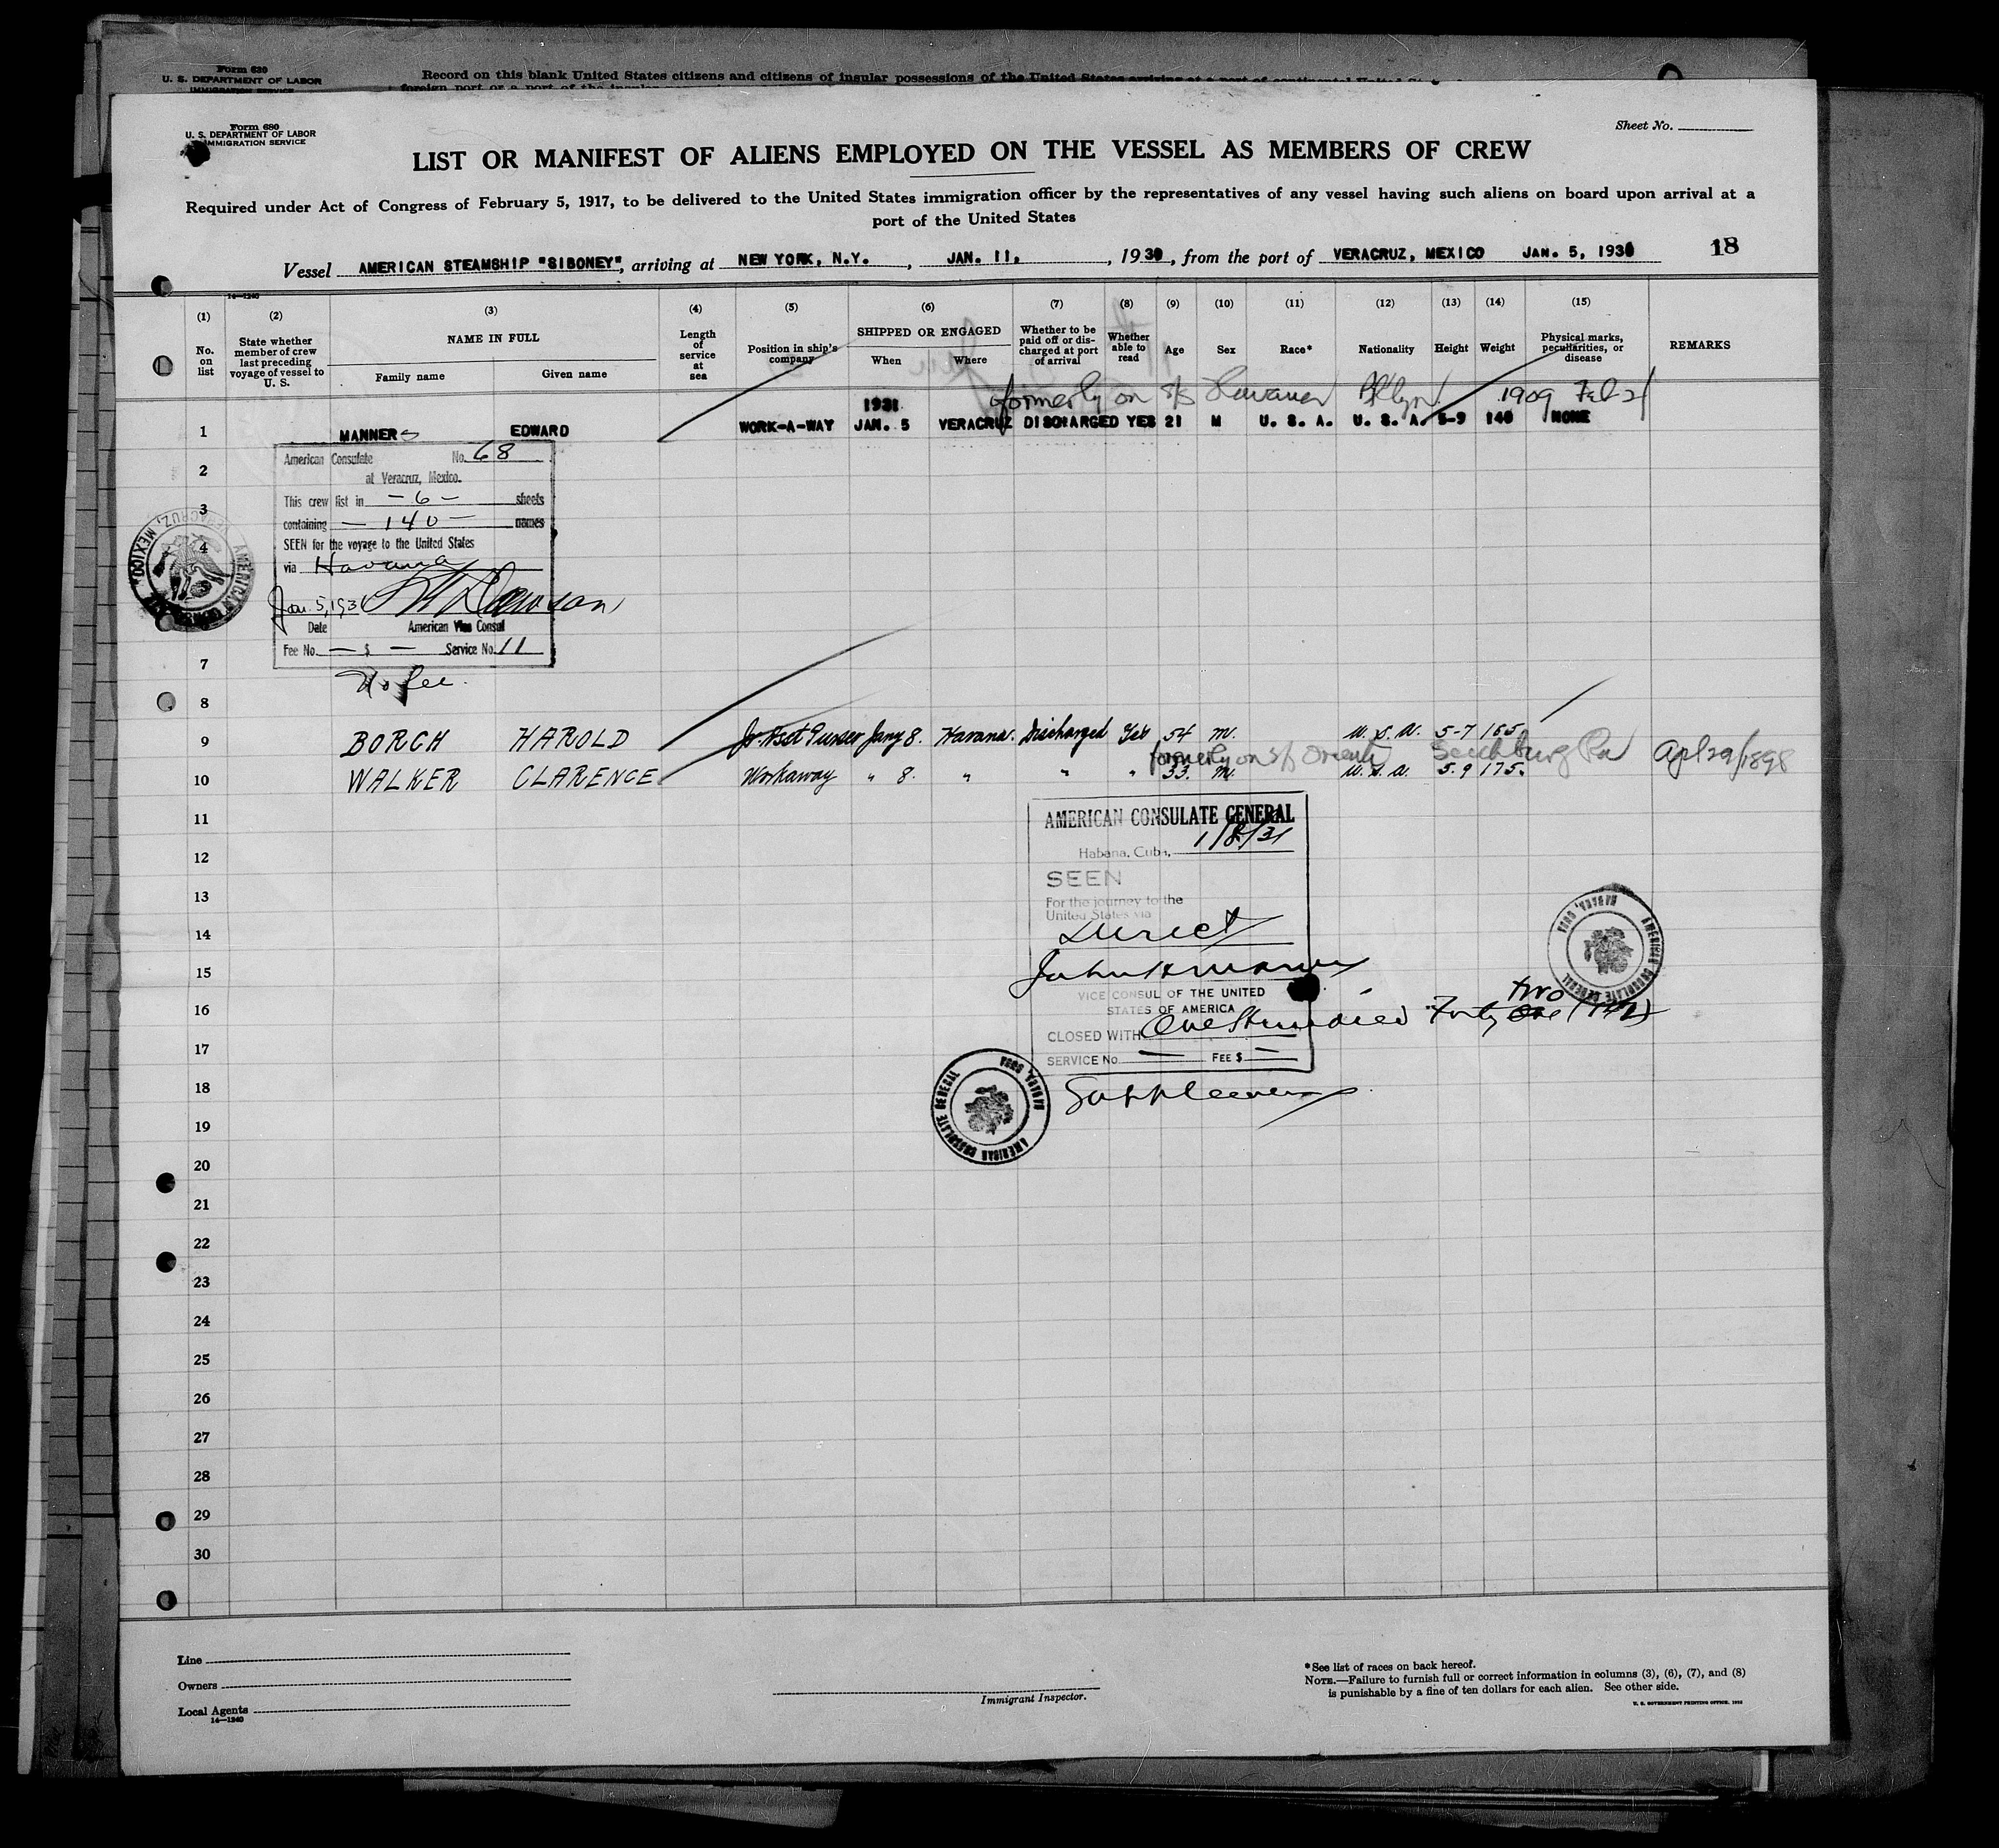 Form 630
U. S. DEPARTMENT OF LABOR
IMMIGRATION SERVICE
Record on this blank United States citizens and citizens of insular possessions of the United States arriving at a port of continental United
foreign port or a port of the insular
Form 680
U. S. DEPARTMENT OF LABOR
IMMIGRATION SERVICE
Sheet No.
LIST OR MANIFEST OF ALIENS EMPLOYED ON THE VESSEL AS MEMBERS OF CREW
Required under Act of Congress of February 5, 1917, to be delivered to the United States immigration officer by the representatives of any vessel having such aliens on board upon arrival at a
port of the United States
Vessel AMERICAN STEAMSHIP "SIBONEY", arriving at NEW YORK, N.Y., JAN. 11, , 1931, from the port of VERACRUZ, MEXICO JAN. 5, 1931
18
14—1240
(1) (2) (3) (4) (5) (6) (7) (8) (9) (10) (11) (12) (13) (14) (15)
No. on list
State whether member of crew last preceding voyage of vessel to U. S.
NAME IN FULL
Family name Given name
Length of service at sea
Position in ship's company
SHIPPED OR ENGAGED
When Where
Whether to be paid off or discharged at port of arrival
Whether able to read
Age Sex Race* Nationality Height Weight
Physical marks, peculiarities, or disease
REMARKS
formerly on S/S Havana Bklyn 1909 Feb 21
1931
1 MANNERS EDWARD WORK-A-WAY JAN. 5 VERACRUZ DISCHARGED YES 21 M U. S. A. U. S. A. 5-9 140 NONE
2
3
4
American Consulate No. 68
at Veracruz, Mexico.
This crew list in — 6 — sheets
containing — 140 — names
SEEN for the voyage to the United States
via Havana
Jan. 5, 1931 Dawson
Date American Vice Consul
Fee No. — $ — Service No. 11
No fee.
AMERICAN CONSULATE VERACRUZ, MEXICO.
7
8
9 BORCH HAROLD Jr. Asst Purser Jany 8. Havana. Discharged Yes 54 m. U. S. A. 5-7 165
formerly on S/S Oriente Leechburg Pa Apl 29/1898
10 WALKER CLARENCE Workaway " 8. " " " 33. m. U. S. A. 5.9 175.
11
12
13
14
15
16
17
18
19
20
21
22
23
24
25
26
27
28
29
30
AMERICAN CONSULATE GENERAL
Habana, Cuba, 1/8/31
SEEN
For the journey to the
United States via
Direct
VICE CONSUL OF THE UNITED
STATES OF AMERICA
CLOSED WITH One Hundred Forty One two (142)
SERVICE No. — FEE $ —
AMERICAN CONSULATE GENERAL HABANA, CUBA
AMERICAN CONSULATE GENERAL HABANA, CUBA
Line
Owners
Local Agents
14—1240
Immigrant Inspector.
*See list of races on back hereof.
NOTE.—Failure to furnish full or correct information in columns (3), (6), (7), and (8)
is punishable by a fine of ten dollars for each alien. See other side.